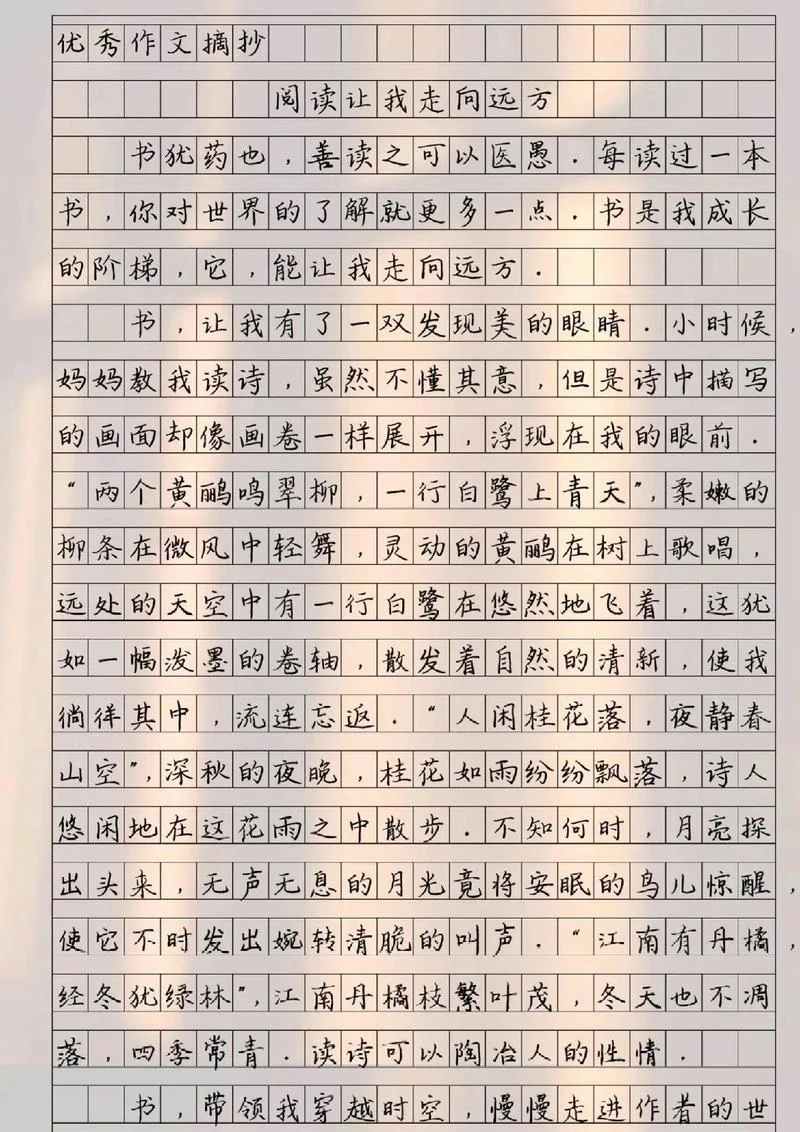 优秀作文摘抄
阅读让我走向远方
书犹药也，善读之可以医愚．每读过一本
书，你对世界的了解就更多一点．书是我成长
的阶梯，它，能让我走向远方．
书，让我有了一双发现美的眼睛．小时候，
妈妈教我读诗，虽然不懂其意，但是诗中描写
的画面却像画卷一样展开，浮现在我的眼前．
“两个黄鹂鸣翠柳，一行白鹭上青天”，柔嫩的
柳条在微风中轻舞，灵动的黄鹂在树上歌唱，
远处的天空中有一行白鹭在悠然地飞着，这犹
如一幅泼墨的卷轴，散发着自然的清新，使我
徜徉其中，流连忘返．“人闲桂花落，夜静春
山空”，深秋的夜晚，桂花如雨纷纷飘落，诗人
悠闲地在这花雨之中散步．不知何时，月亮探
出头来，无声无息的月光竟将安眠的鸟儿惊醒，
使它不时发出婉转清脆的叫声．“江南有丹橘，
经冬犹绿林”，江南丹橘枝繁叶茂，冬天也不凋
落，四季常青．读诗可以陶冶人的性情．
书，带领我穿越时空，慢慢走进作者的世